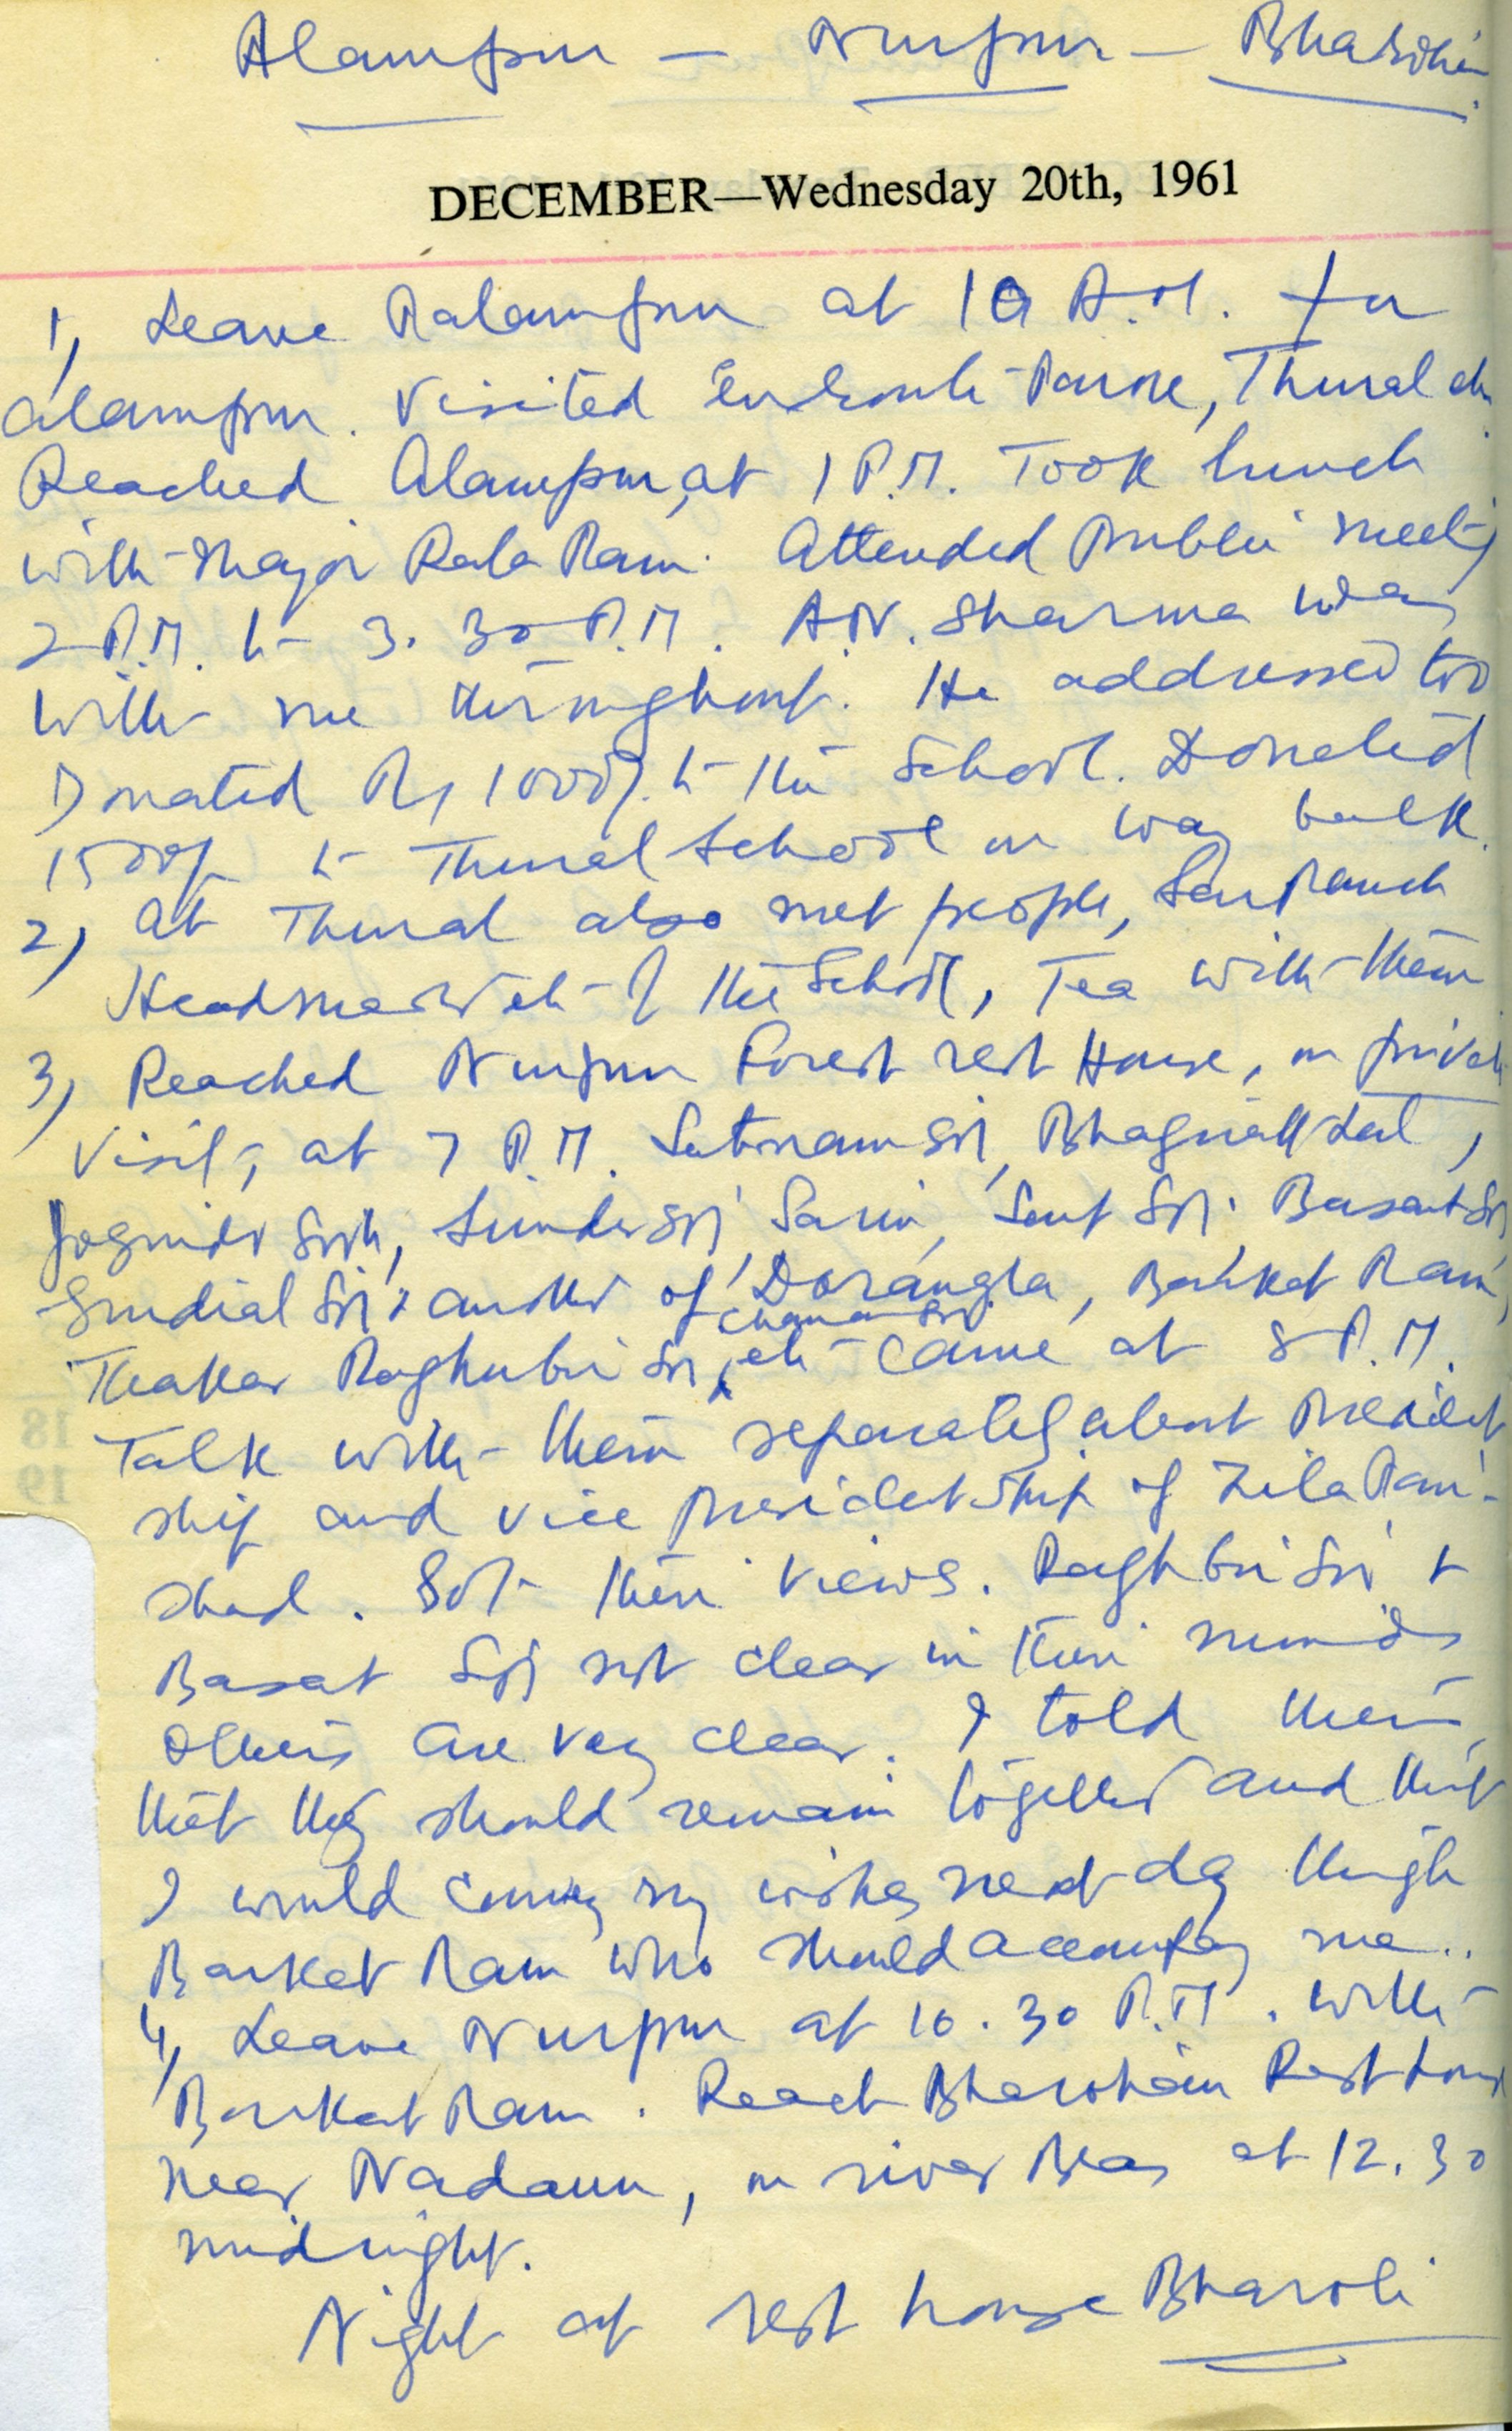 Alampur — Nurpur — Bharohin
DECEMBER—Wednesday 20th, 1961
1, Leave Palampur at 10 A.M. for
Alampur. Visited enroute Paror, Thural etc
Reached Alampur, at 1 P.M. Took lunch
with Major Rala Ram. Attended Public meeting
2 P.M. to 3.30 P.M. A.N. Sharma was
with me throughout. He addressed too
Donated Rs 1000/- to the School. Donated
1500/- to Thural School on way back.
2, At Thural also met people, Sarpanch
Headmaster etc of the School, Tea with them
3, Reached Nurpur Forest rest House, on private
visit, at 7 P.M. Satnam Sin, Bhagmall Lal,
Joginder Singh, Sunder Sin Sarin, Sant Sin, Basant Sin
Gurdial Sin & another of Dorangla, Barkat Ram,
Thakar Raghubir Sin, Chanan Sin etc came at 8 P.M.
Talk with them separately about President
ship and vice Presidentship of Zila Pari-
shad. Got their views. Raghbir Sin &
Basat Sin not clear in their minds
Others are very clear. I told them
that they should remain together and that
I would convey my wishes next day through
Barkat Ram who should accompany me..
4, Leave Nurpur at 10.30 P.M. with
Barkat Ram. Reach Bharohin Rest House
near Nadaun, on river Beas at 12.30
midnight.
Night at rest house Bharoli